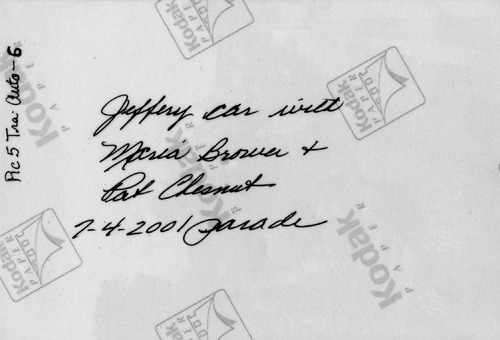 Jeffery car with
Maria Brower +
Pat Chesnut
7-4-2001 parade
Pic 5 Tra: Auto-6
Kodak
PAPER
Kodak
PAPER
Kodak
PAPER
Kodak
PAPER
Kodak
PAPER